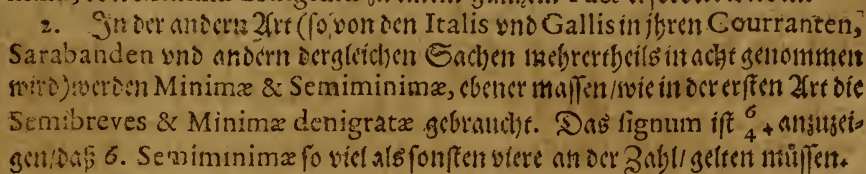 2. In der andern Art (so von den Italis vnd Gallis in jhren Courranten,
Sarabanden vnd andern dergleichen Sachen mehrertheils in acht genommen
wird) werden Minimæ & Semiminimæ, ebener massen / wie in der ersten Art die
Semibreves & Minimæ denigratæ gebraucht. Das signum ist 6/4. anzuzei-
gen / daß 6. Semiminimæ so viel als sonsten viere an der Zahl / gelten müssen.